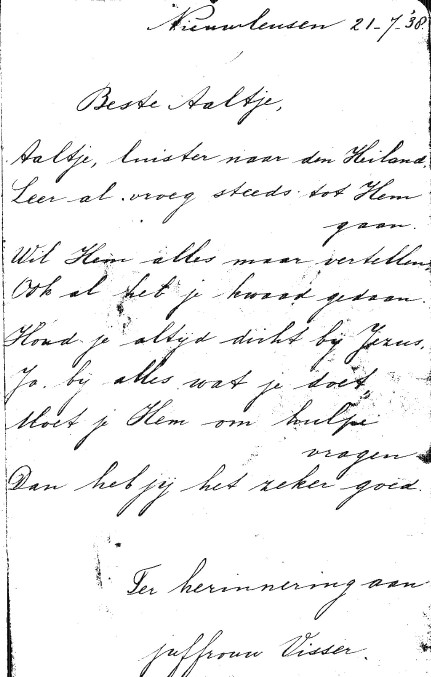 Nieuwleusen 21-7-'38.
Beste Aaltje,
Aaltje, luister naar den Heiland,
Leer al vroeg steeds tot Hem
gaan.
Wil Hem alles maar vertellen,
Ook al heb je kwaad gedaan.
Houd je altijd dicht bij Jezus,
Ja bij alles wat je doet,
Moet je Hem om hulpe
vragen
Dan heb jij het zeker goed.
Ter herinnering aan
juffrouw Visser.